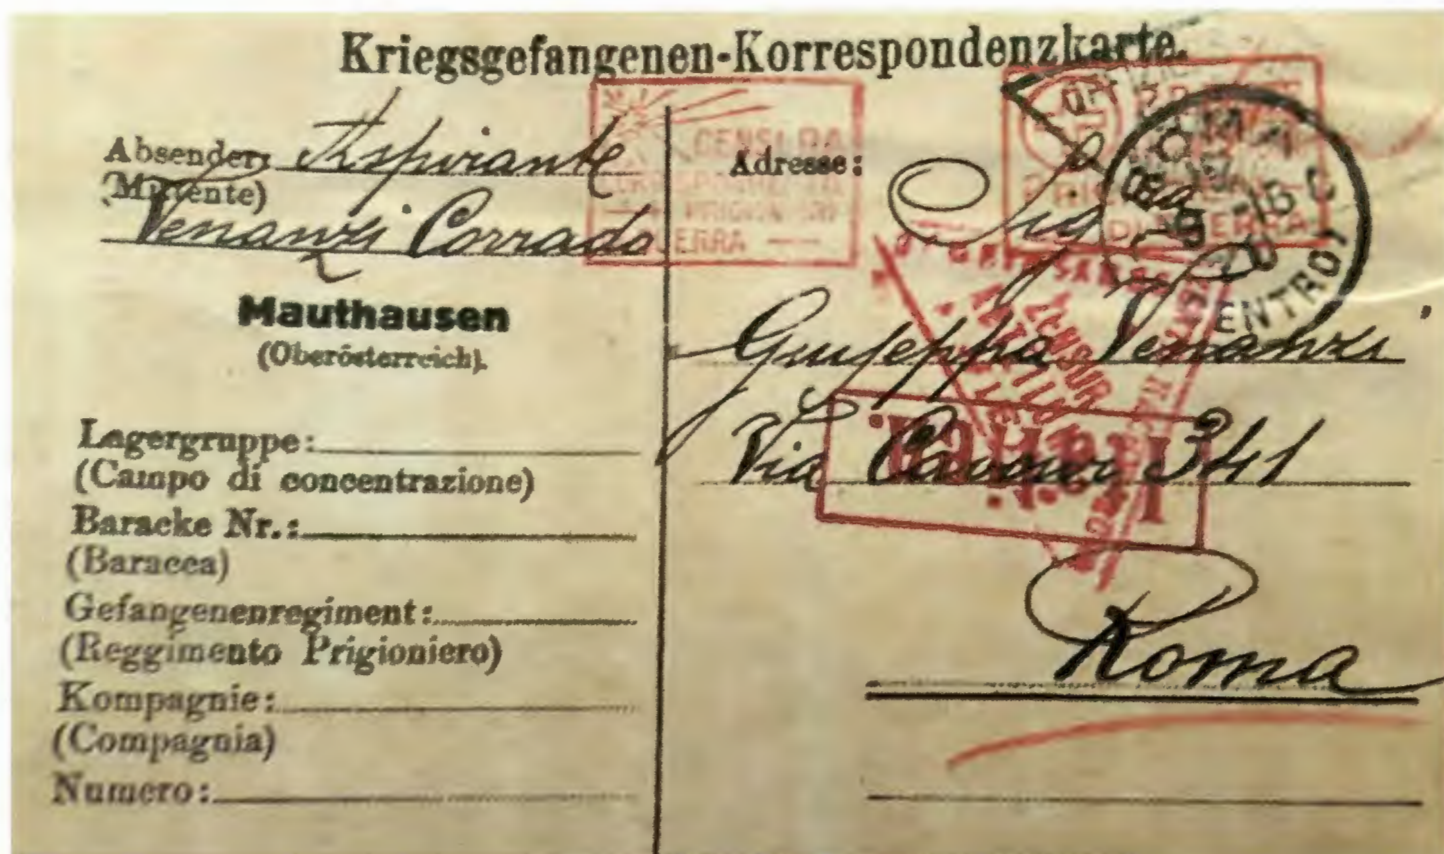 Kriegsgefangenen-Korrespondenzkarte.
Absender: Aspirante
(Mittente)
Venanzi Corrado
Mauthausen
(Oberösterreich).
Lagergruppe:
(Campo di concentrazione)
Baracke Nr.:
(Baracca)
Gefangenenregiment:
(Reggimento Prigioniero)
Kompagnie:
(Compagnia)
Numero:
CENSURA
PRIGIONIERI
GUERRA
Adresse:
Giuseppa Venanzi
Via Cavour 341
Roma
ROMA
CENTRO
ZENSUR